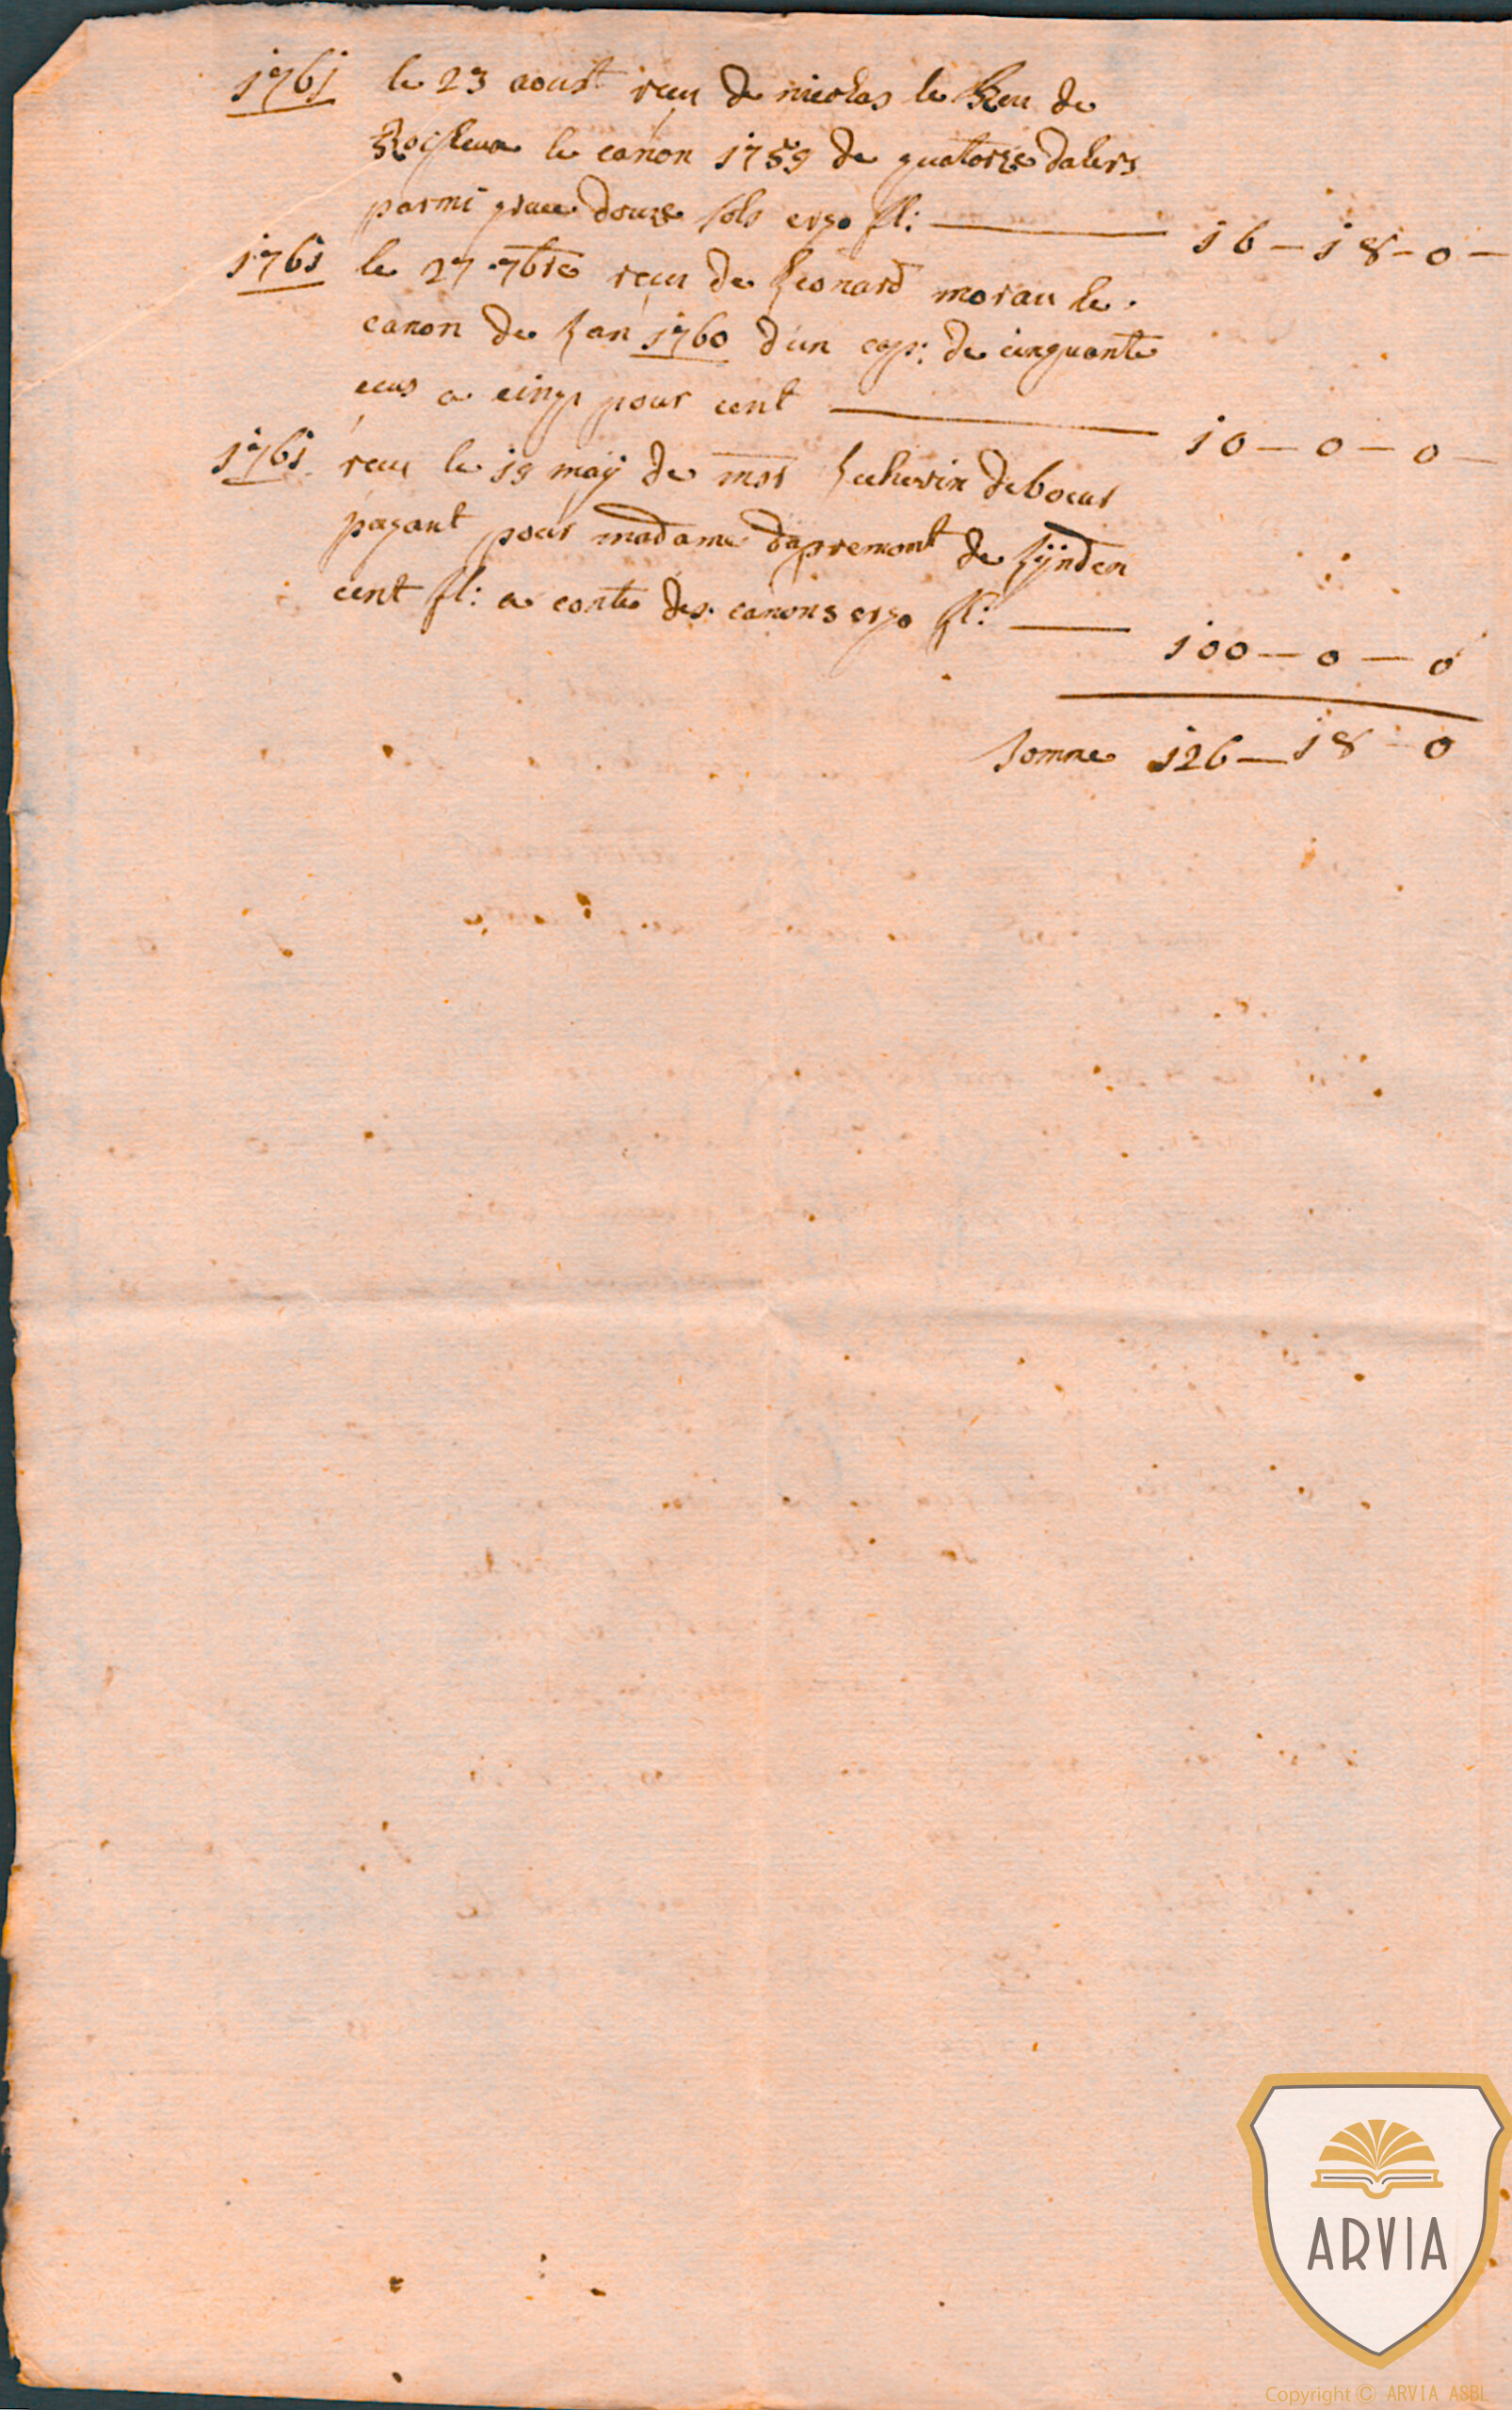 1761 le 23 aoust reçu de nicolas le Keu de
le canon 1759 de quatorze dalers
parmi grace douze sols ergo fl: 16 - 18 - 0 -
1761 le 27 7bre reçu de Leonard morau le
canon de Lan 1760 d'un cap: de cinquante
ecus a cinq pour cent 10 - 0 - 0 -
1761 reçu le 19 maÿ de mr Lechevin deboeur
payant pour madame daspremont de Lÿnden
cent fl: a conte des canons ergo fl: 100 - 0 - 0
Somme 126 - 18 - 0
ARVIA
Copyright © ARVIA ASBL